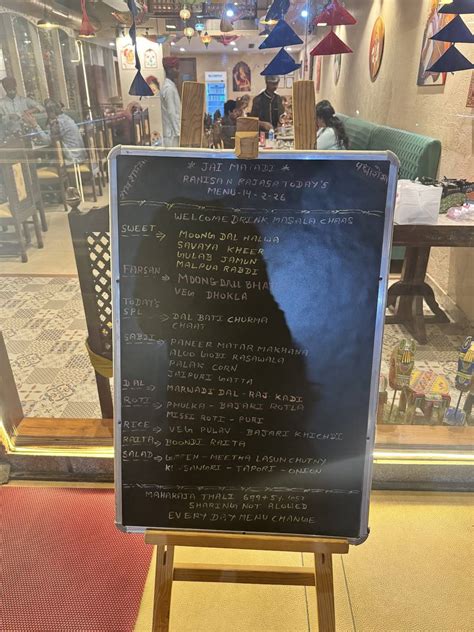 * JAI MATADI *
RANISA N RAJASA TODAY'S
MENU-14-2-26
WELCOME DRINK MASALA CHAAS
SWEET → MOONG DAL HALWA
SAVAYA KHEER
GULAB JAMUN
MALPUA RABDI
FARSAN → MOONG DALL BHAJ
VEG DHOKLA
TODAY'S
SPL → DAL BATI CHURMA
CHAAT
SABJI → PANEER MATAR MAKHANA
ALOO GOBI RASAWALA
PALAK CORN
JAIPURI GATTA
DAL → MARWADI DAL - RAJ KADI
ROTI → PHULKA - BAJARI ROTLA
MISSI ROTI - PURI
RICE → VEG PULAV - BAJARI KHICHDI
RAITA → BOONDI RAITA
SALAD → GREEN - MEETHA LASUN CHUTNY
SANGRI - TAPORI - ONION
MAHARAJA THALI 699+5% GST
SHARING NOT ALOUED
EVERY DAY MENU CHANGE